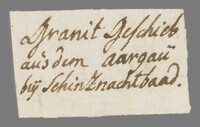 Granit Geschieb
aus dem aargau
bÿ Schinznachtbaad.